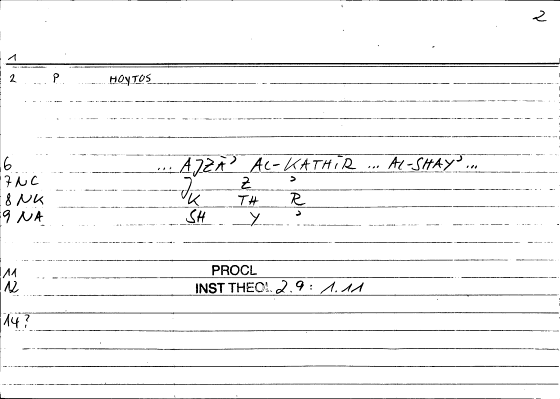 2
1
2 P HOYTOS
6 ... AJZĀʾ AL-KATHĪR ... AL-SHAYʾ...
7 NC J Z ʾ
8 NK K TH R
9 NA SH Y ʾ
11 PROCL
12 INST THEOL 2.9: 1.11
14?